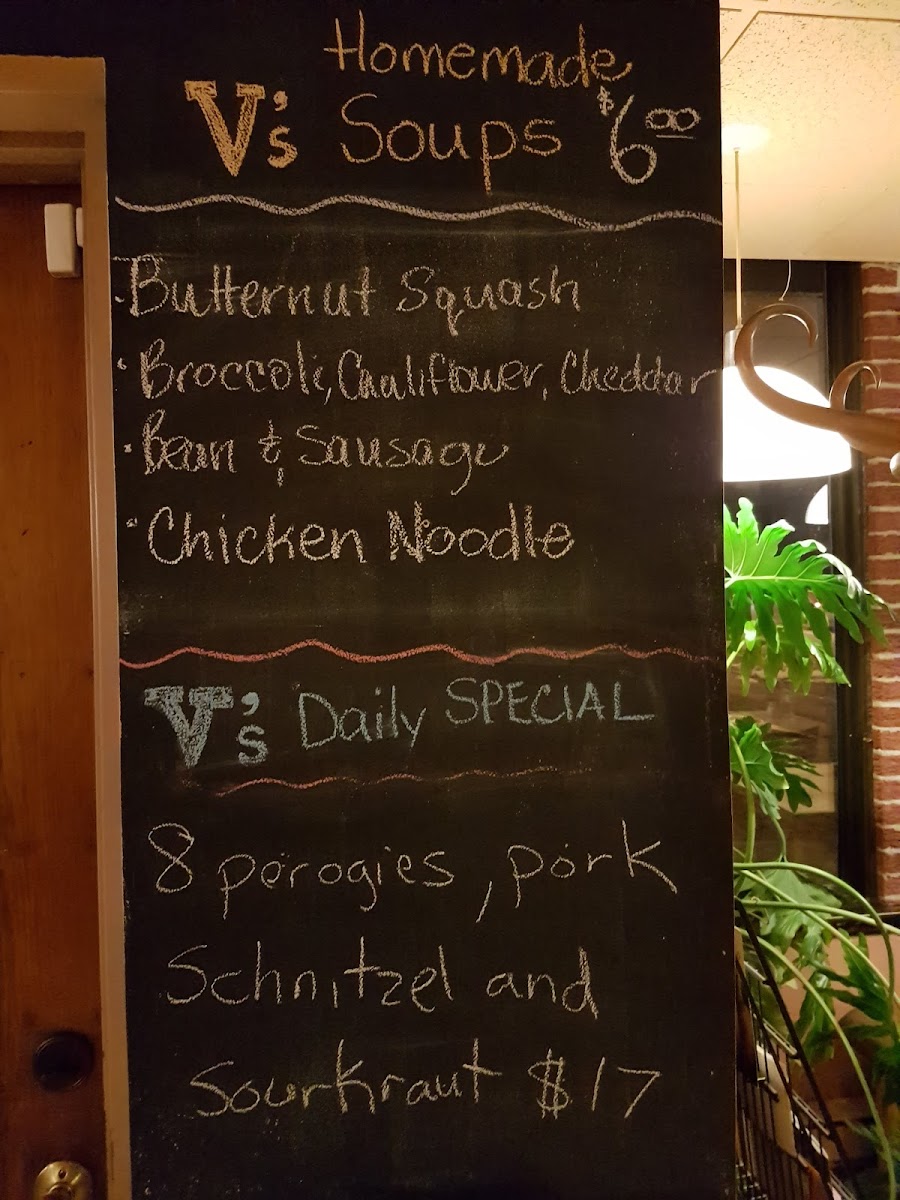 Homemade
V's Soups $6.00
· Butternut Squash
· Broccoli, Cauliflower, Cheddar
· Bean & Sausage
· Chicken Noodle
V's Daily SPECIAL
8 perogies, pork
Schnitzel and
Sourkraut $17